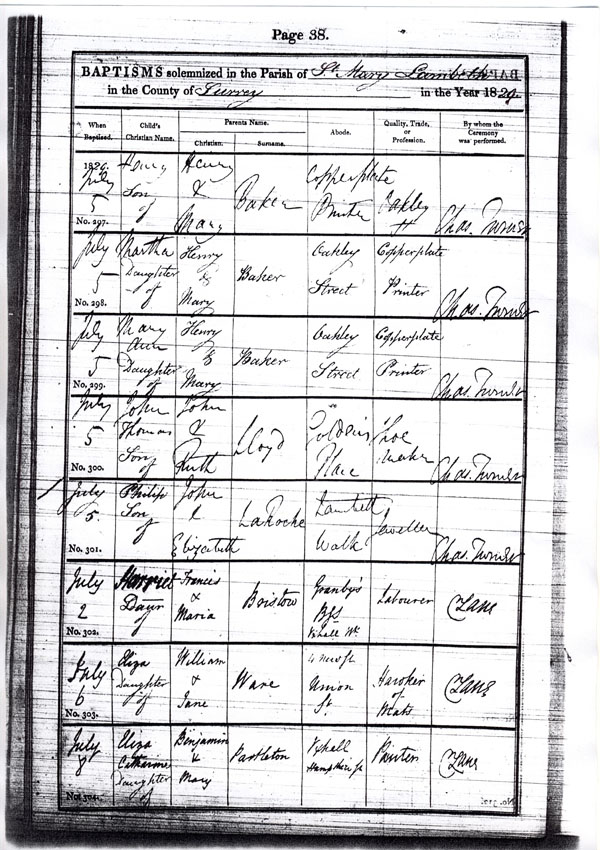 Page 38.
BAPTISMS solemnized in the Parish of St. Mary Lambeth
in the County of Surrey in the Year 1829.
When Baptised. Child's Christian Name. Parents Name. Christian. Surname. Abode. Quality, Trade, or Profession. By whom the Ceremony was performed.
1829. July 5 No. 297. Henry Son of Henry & Mary Baker Copperplate Printer Oakley St Chas. Turner
July 5 No. 298. Martha Daughter of Henry & Mary Baker Oakley Street Copperplate Printer Chas. Turner
July 5 No. 299. Mary Ann Daughter of Henry & Mary Baker Oakley Street Copperplate Printer Chas. Turner
July 5 No. 300. John Thomas Son of John & Ruth Lloyd Place Shoe maker Chas. Turner
July 5. No. 301. Philip Son of John & Elizabeth LaRoche Lambeth Walk Jeweller Chas. Turner
July 2 No. 302. Harriet Daur of Francis & Maria Bristow Granby's Bgs Vxhall Wk Labourer C Lane
July 6 No. 303. Eliza Daughter of William & Jane Ware Union St. Hawker of Mats C Lane
July 8 No. 304. Eliza Catharine Daughter of Benjamin & Mary Partleton Vxhall Hampshire St Painter C Lane